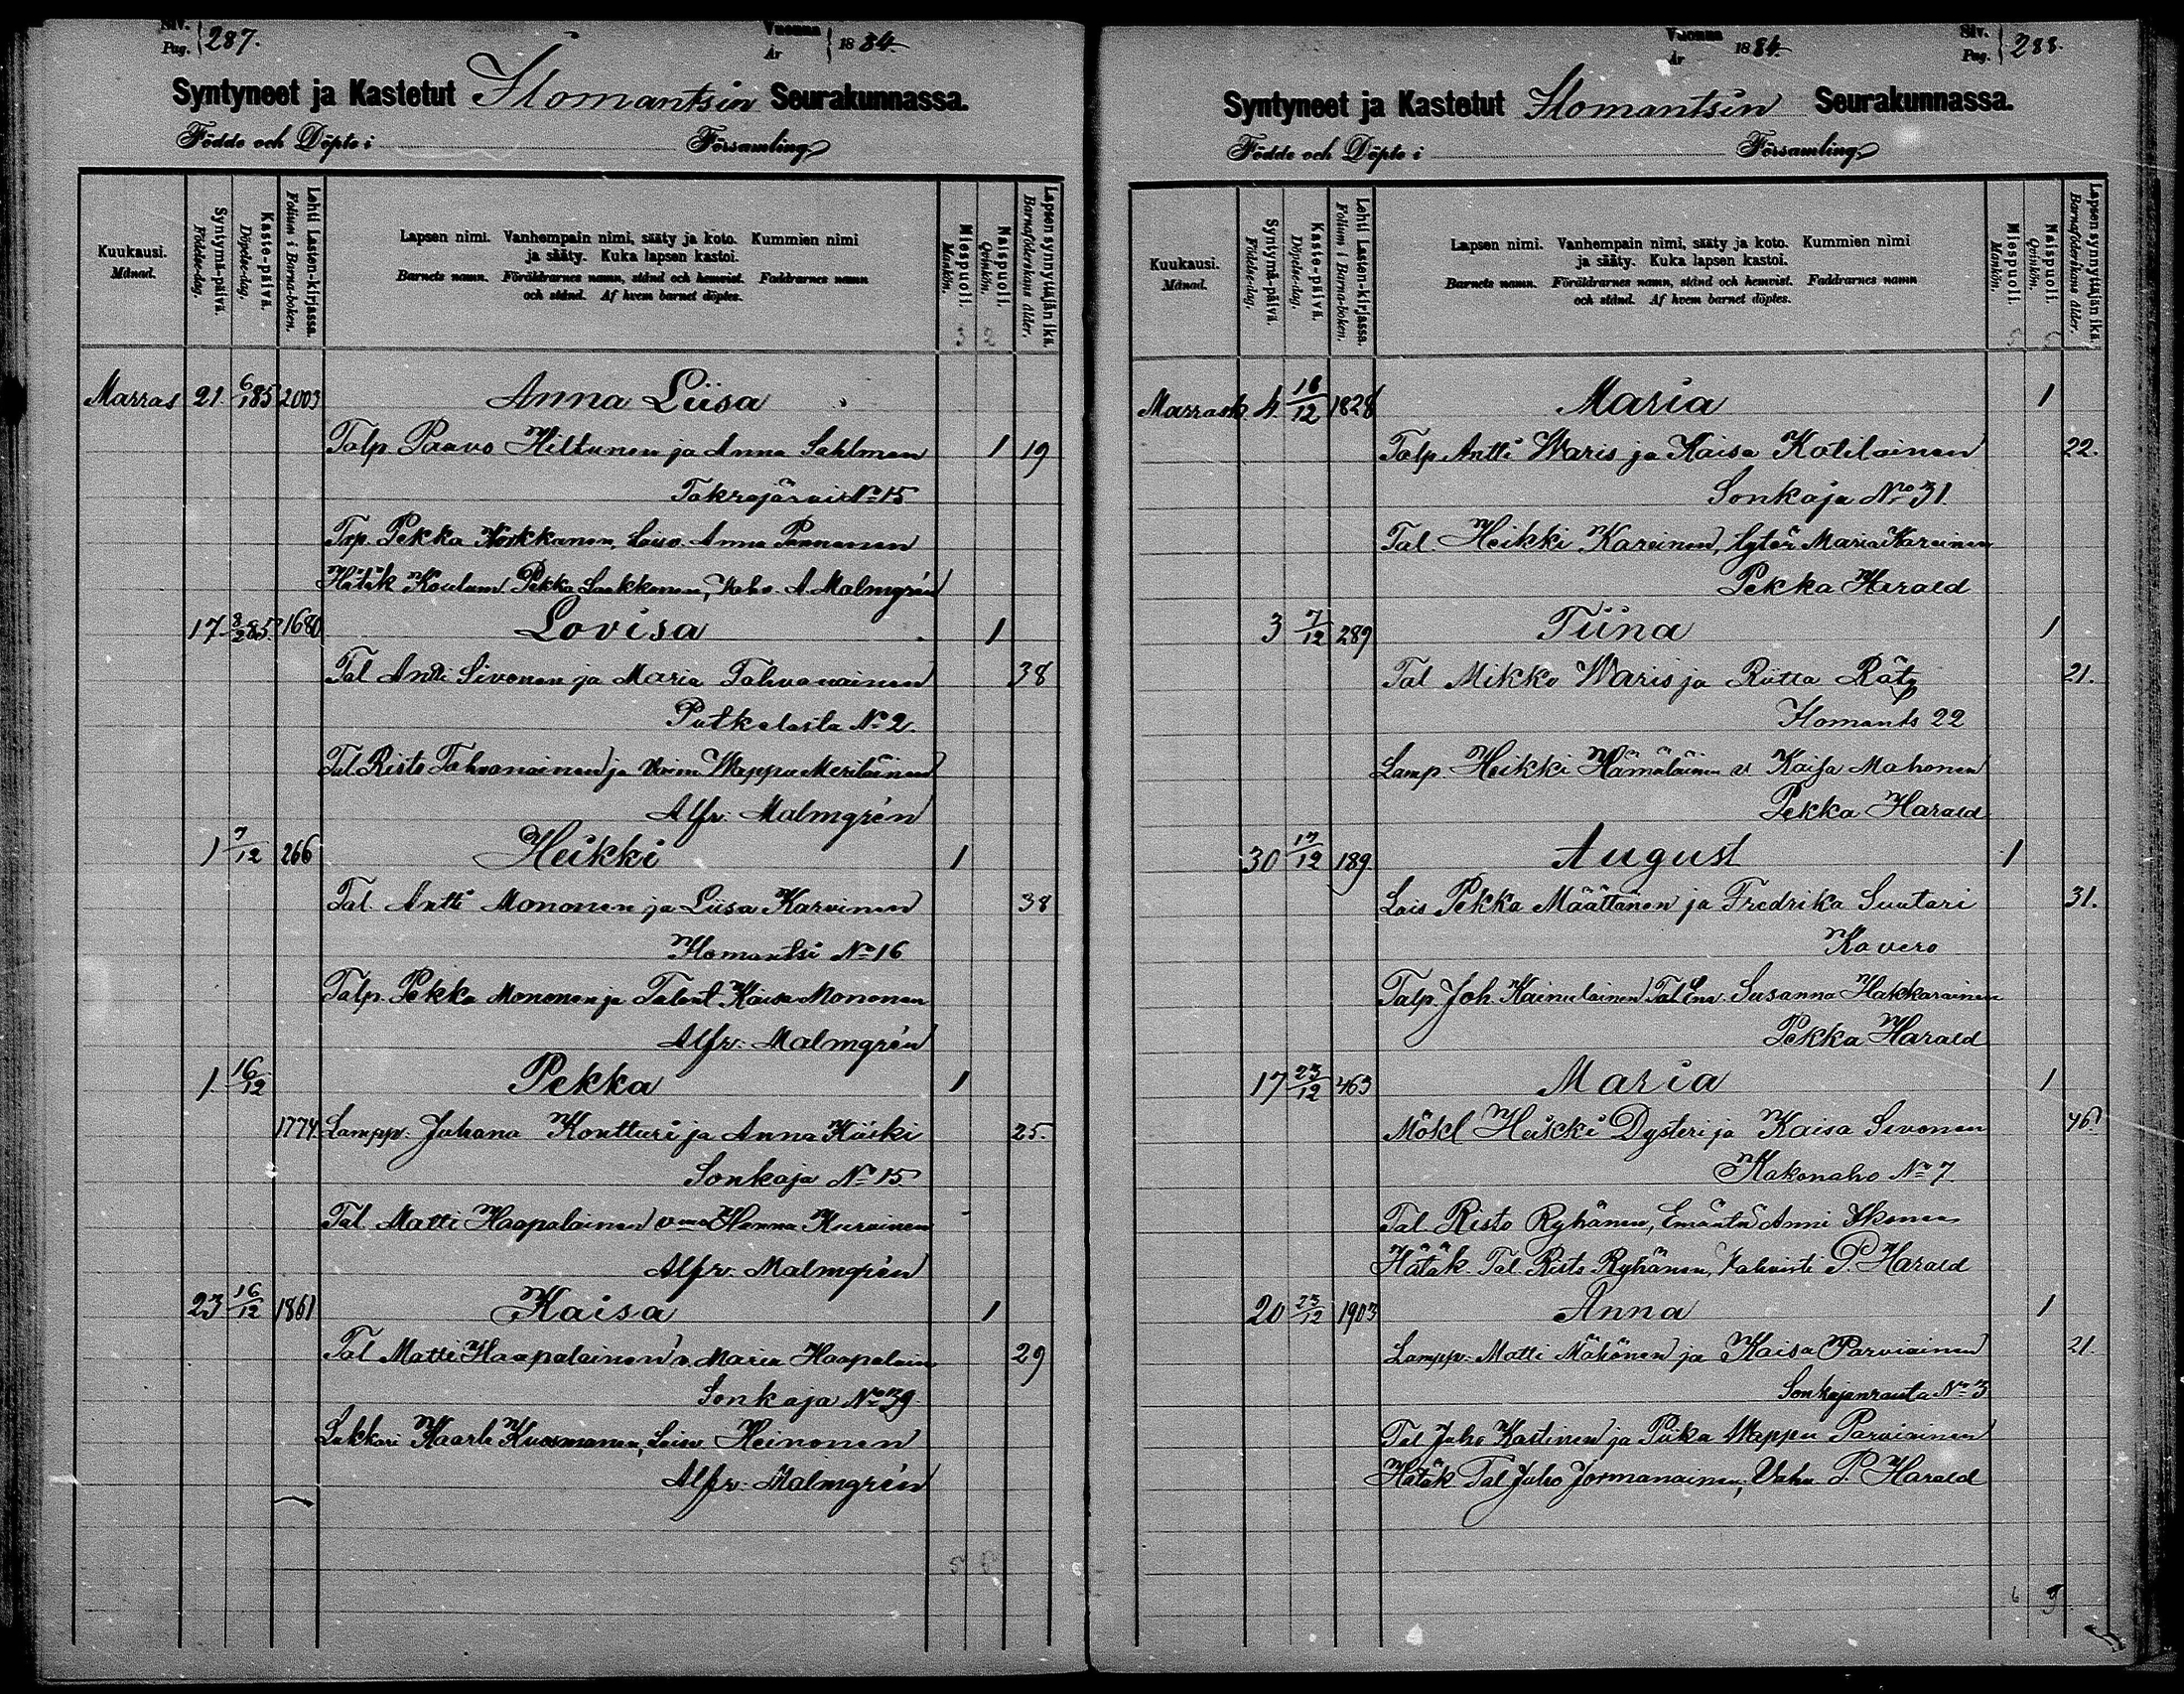 Siv.
Pag. 287.
Vuonna
År 1884
Syntyneet ja Kastetut Ilomantsin Seurakunnassa.
Födde och Döpte i Församling
Kuukausi.
Månad.
Syntymä-päivä.
Födelse-dag.
Kaste-päivä.
Döpelse-dag.
Lehti Lasten-kirjassa.
Folium i Barna-boken.
Lapsen nimi. Vanhempain nimi, sääty ja koto. Kummien nimi
ja sääty. Kuka lapsen kastoi.
Barnets namn. Föräldrarnes namn, stånd och hemvist. Faddrarnes namn
och stånd. Af hvem barnet döptes.
Miespuoli.
Mankön.
Naispuoli.
Qvinkön.
Lapsen synnyttäjän ikä.
Barnaföderskans ålder.
3 2
Marras 21 6/1 85 2003 Anna Liisa
Talp. Paavo Hiltunen ja Anna Sahlman 1 19
No 15
Pekka Korkkanen, Anna
Hätäk Pekka Laakkonen, A. Malmgrén
17 8/2 85 1680 Lovisa 1
Tal Antti Sivonen ja Maria Tahvanainen 38
Putkelasla No 2.
Tal. Risto Tahvanainen ja Wappu Meriläinen
Alfr. Malmgrén
1 7/12 266 Heikki 1
Tal. Antti Mononen ja Liisa Karvinen 38
Ilomantsi No 16
Talp. Pekka Mononen ja Kaisa Mononen
Alfr. Malmgrén
1. 16/12 Pekka 1
1774 Lampp. Juhana Kontturi ja Anna Kiiski 25.
Sonkaja No 15.
Tal. Matti Haapalainen Hanna
Alfr. Malmgrén
23 16/12 1861 Kaisa 1
Tal Matti Haapalainen v. Maria Haapalain 29
Sonkaja No 39.
Lukkari Kaarle Kuosmanen, Heinonen
Alfr. Malmgrén
Vuonna
År 1884
Siv.
Pag. 288.
Syntyneet ja Kastetut Ilomantsin Seurakunnassa.
Födde och Döpte i Församling
Kuukausi.
Månad.
Syntymä-päivä.
Födelse-dag.
Kaste-päivä.
Döpelse-dag.
Lehti Lasten-kirjassa.
Folium i Barna-boken.
Lapsen nimi. Vanhempain nimi, sääty ja koto. Kummien nimi
ja sääty. Kuka lapsen kastoi.
Barnets namn. Föräldrarnes namn, stånd och hemvist. Faddrarnes namn
och stånd. Af hvem barnet döptes.
Miespuoli.
Mankön.
Naispuoli.
Qvinkön.
Lapsen synnyttäjän ikä.
Barnaföderskans ålder.
Marrask. 4. 16/12 1828 Maria 1
Talp. Antti Waris ja Kaisa Kotilainen 22.
Sonkaja No 31.
Tal. Heikki Karvinen, Maria Karvinen
Pekka Harald
3 7/12 289 Tiina 1
Tal Mikko Waris ja Riitta Räty 21.
Ilomants 22
Lamp. Heikki Hämäläinen v Kaisa Mahonen
Pekka Harald
30 17/12 189. August 1
Lois Pekka Määttänen ja Fredrika Suutari 31.
Kovero
Talp. Joh Kainulainen Tal Em. Susanna Hakkarainen
Pekka Harald
17 23/12 463 Maria 1
Mökl Heikki Dysteri ja Kaisa Sivonen 46
Kakonaho No 7.
Tal. Risto Ryhänen, Emäntä Anni Ikonen
Hätäk. Tal. Risto Ryhänen, Vahvisti P. Harald
20 23/12 1903 Anna 1
Lampp. Matti Mähönen ja Kaisa Parviainen 21.
Sonkajanranta No 3
Tal Juho Kastinen ja Piika Wappu Parviainen
Hätäk Tal Juho Jormanainen, Vahv. P. Harald
6 9